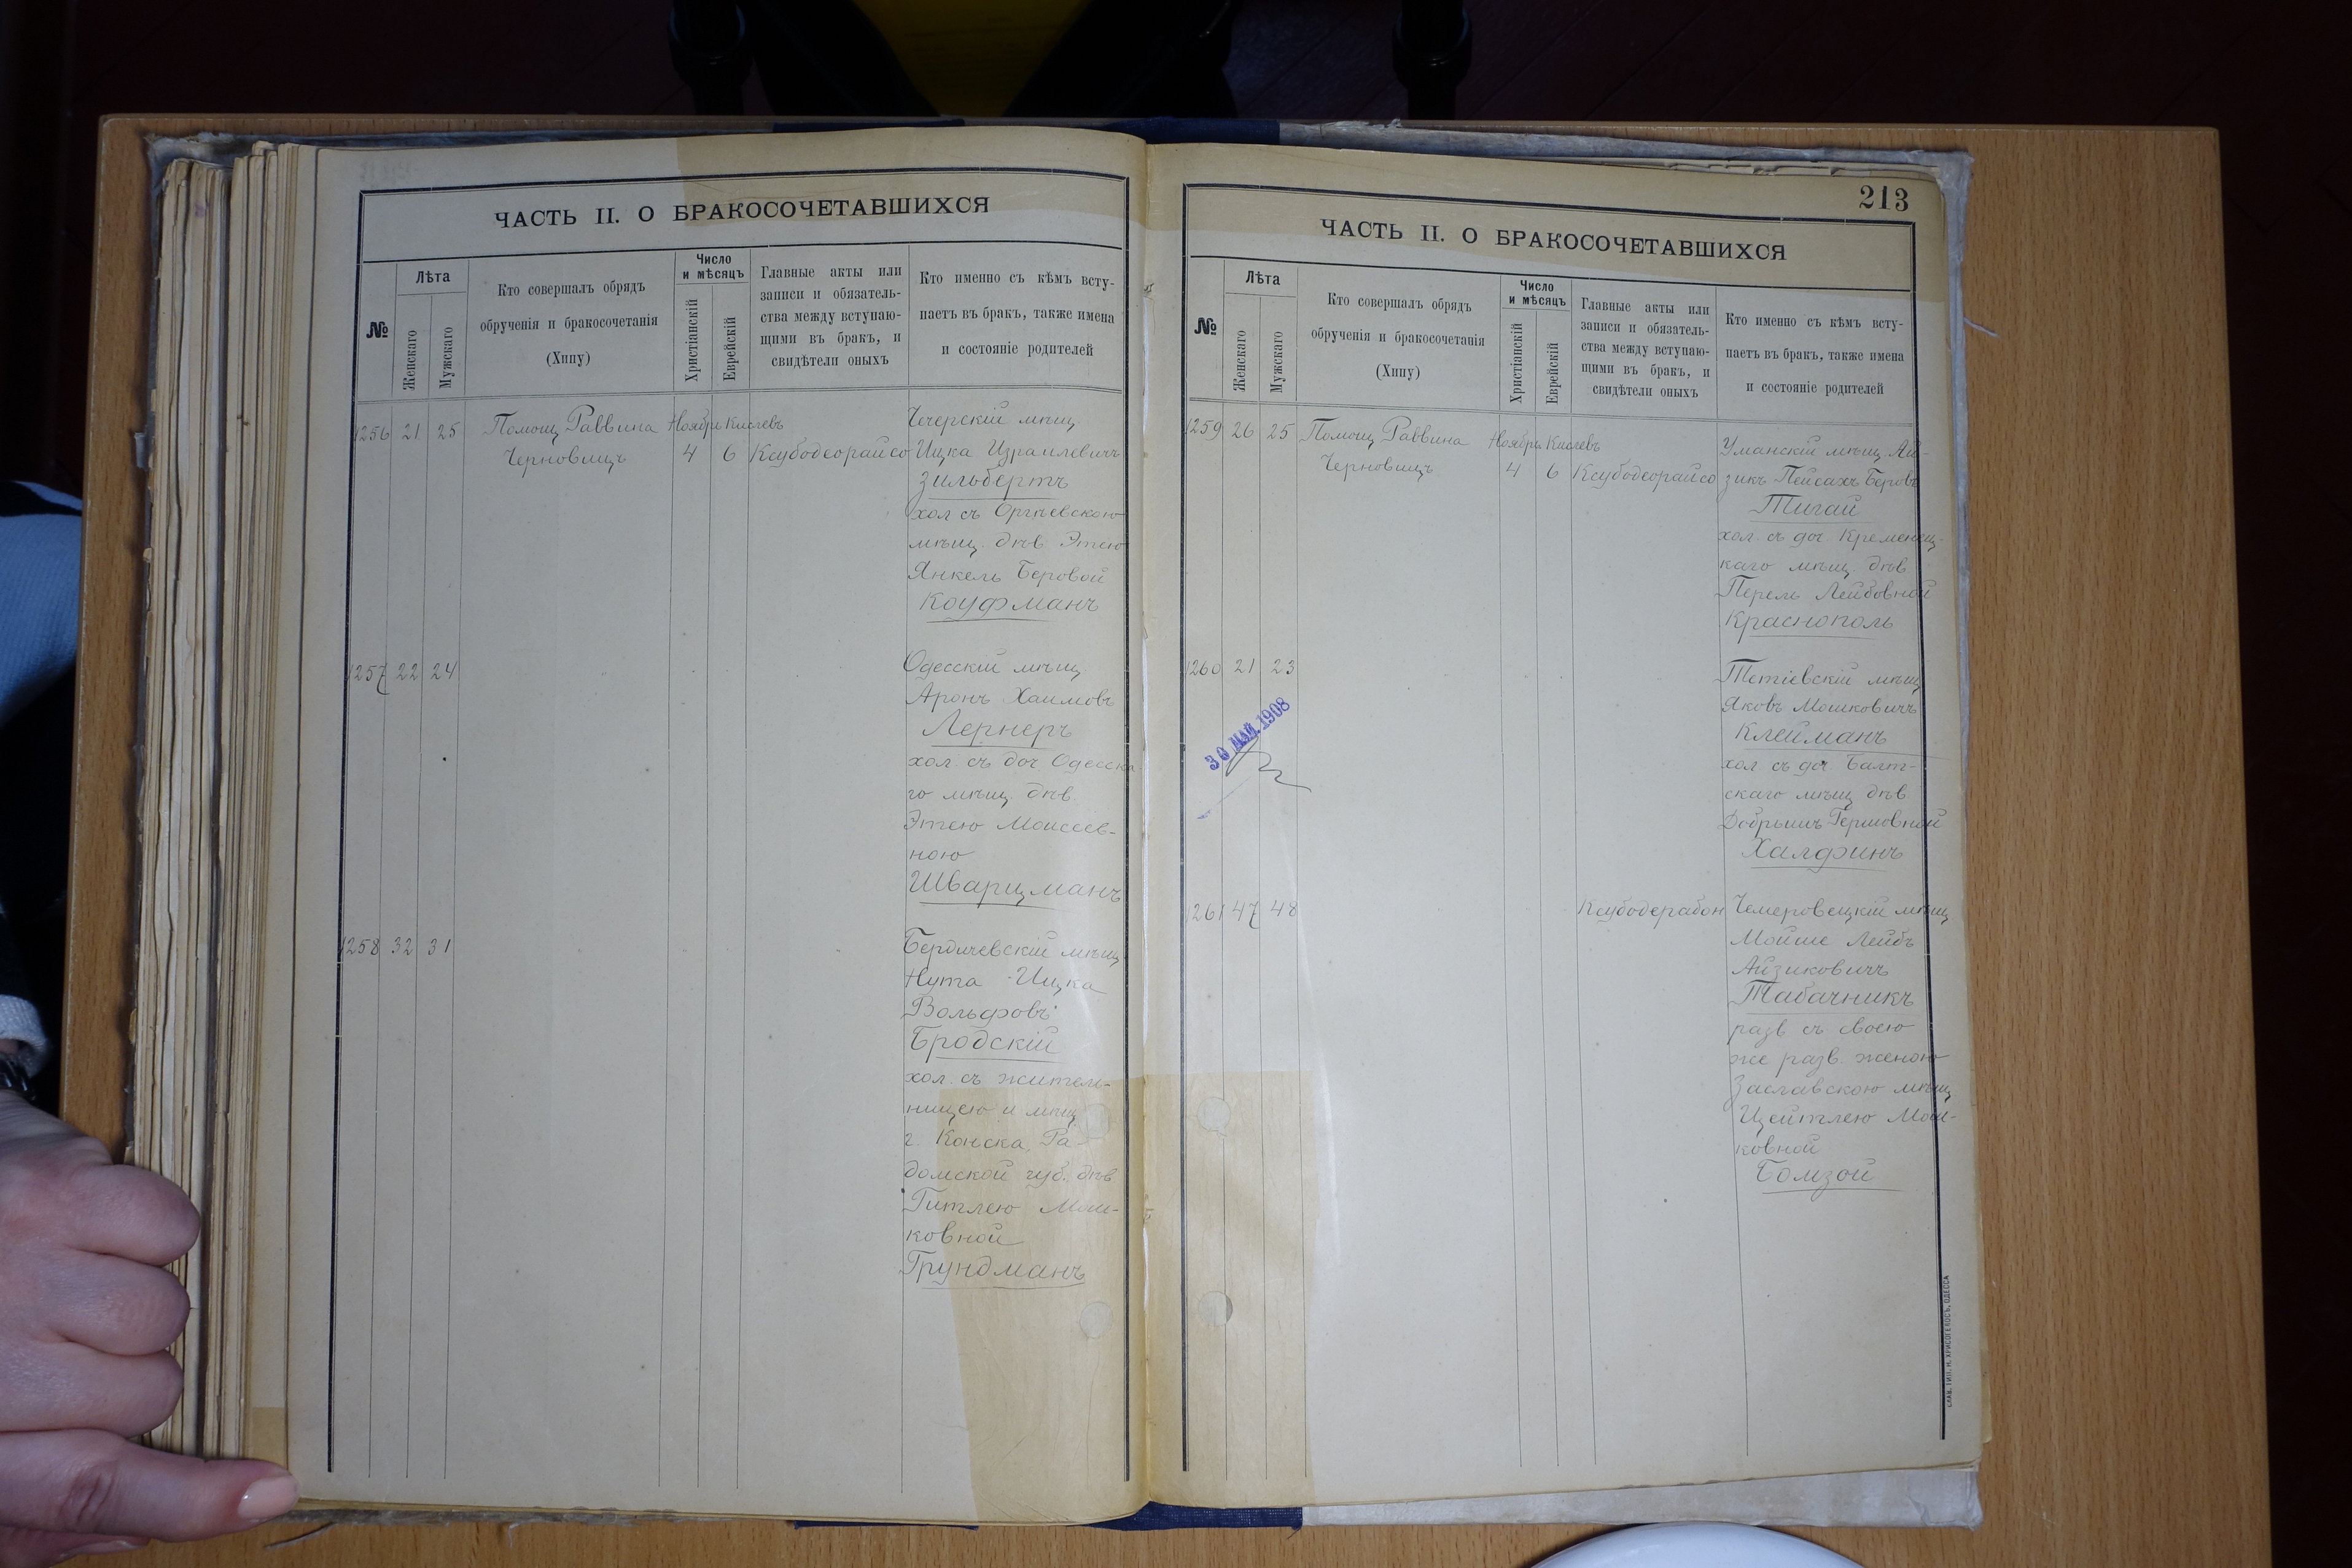 ЧАСТЬ II. О БРАКОСОЧЕТАВШИХСЯ
№
Лѣта
Женскаго
Мужскаго
Кто совершалъ обрядъ
обрученія и бракосочетанія
(Хипу)
Число
и мѣсяцъ
Христіанскій
Еврейскій
Главные акты или
записи и обязатель-
ства между вступаю-
щими въ бракъ, и
свидѣтели оныхъ
Кто именно съ кѣмъ всту-
паетъ въ бракъ, также имена
и состояніе родителей
1256 21 25 Помощ Раввина Ноябрь Кислевъ
Черновицъ 4 6 Ксубодеорайсо
Чечерскій мѣщ.
Ицка Израилевичъ
Зильбертъ
хол съ Оргѣевскою
мѣщ. дѣв Этею
Янкель Беровой
Коуфманъ
1257 22 24
Одесскій мѣщ.
Аронъ Хаимовъ
Лернеръ
хол. съ доч Одесска
го мѣщ. дѣв.
Этею Моисеев-
ною
Шварцманъ
1258 32 31
Бердичевскій мѣщ
Нута-Ицка
Вольфовъ
Бродскій
хол. съ житель-
ницею и мѣщ
г. Конска, Ра-
домской губ. дѣв
Гитлею Мош-
ковной
Грундманъ
213
ЧАСТЬ II. О БРАКОСОЧЕТАВШИХСЯ
№
Лѣта
Женскаго
Мужскаго
Кто совершалъ обрядъ
обрученія и бракосочетанія
(Хипу)
Число
и мѣсяцъ
Христіанскій
Еврейскій
Главные акты или
записи и обязатель-
ства между вступаю-
щими въ бракъ, и
свидѣтели оныхъ
Кто именно съ кѣмъ всту-
паетъ въ бракъ, также имена
и состояніе родителей
1259 26 25 Помощ Раввина Ноябрь Кислевъ
Черновицъ 4 6 Ксубодеорайсо
Уманскій мѣщ. Ай-
зикъ Пейсахъ Беровъ
Тигай
хол. съ доч. Кременец-
каго мѣщ. дѣв
Перель Лейбовной
Краснополь
1260 21 23
Тетіевскій мѣщ
Яковъ Мошковичъ
Клейманъ
хол. съ доч. Балт-
скаго мѣщ дѣв.
Добрышъ Гершовной
Халфинъ
30 МАЙ.1908
1261 47 48 Ксубодерабон
Чемеровецкій мѣщ
Мойше Лейбъ
Айзиковичъ
Табачникъ
разв съ своею
же разв. женою
Заславскою мѣщ
Цейтлею Мош-
ковной
Бомзой
СЛАВ. ТИП. Н. ХРИСОГЕЛОСЪ, ОДЕССА